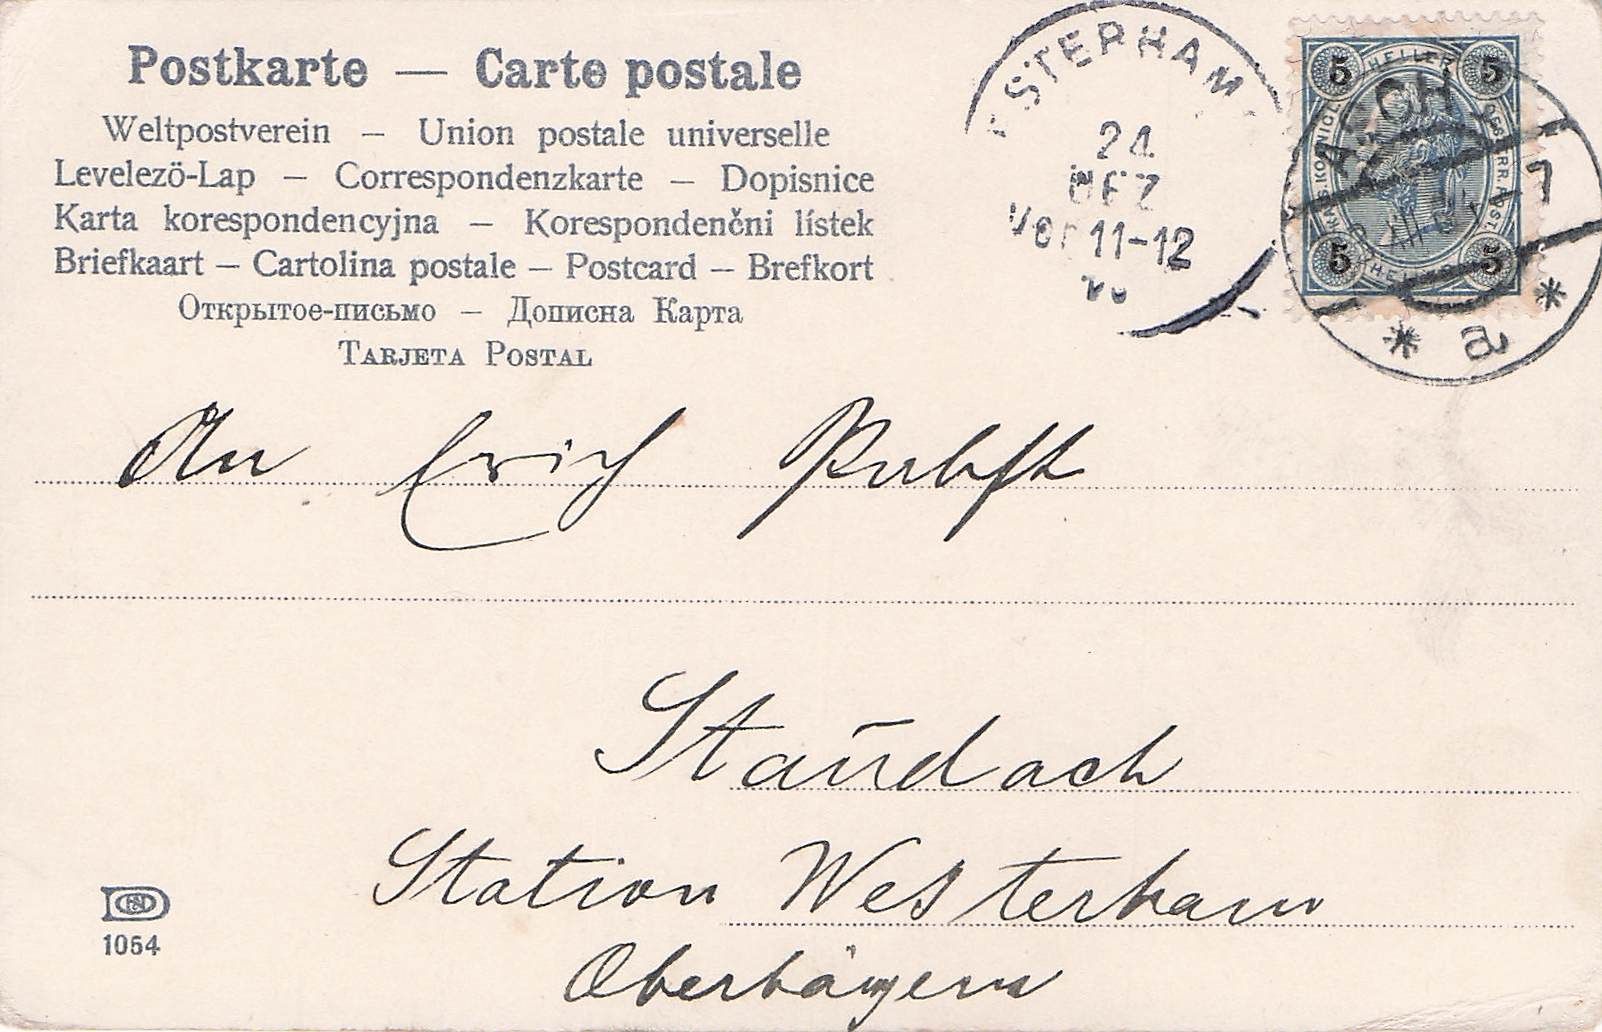 Postkarte — Carte postale
Weltpostverein – Union postale universelle
Levelező-Lap – Correspondenzkarte – Dopisnice
Karta korespondencyjna – Korespondenčni lístek
Briefkaart – Cartolina postale – Postcard – Brefkort
Открытое-письмо – Дописна Карта
TARJETA POSTAL
STERHAM
24
DEZ
VOR 11-12
5 HELLER 5
5 HELLER 5
ASCH
* a *
An Erich Pabst
Staudach
Station Westerham
Oberbayern
1054